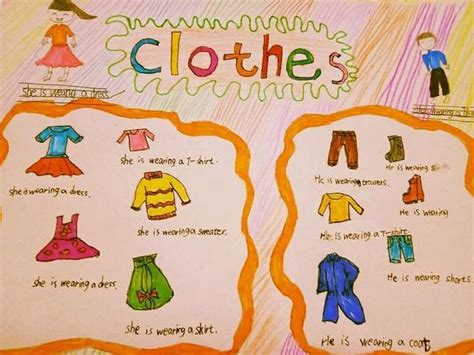 Clothes
she is wearing a dress.
she is wearing a T-shirt.
she is wearing a dress.
she is wearing a sweater.
she is wearing a dress.
she is wearing a skirt.
He is wearing
He is wearing trousers.
He is wearing
He is wearing a T-shirt.
He is wearing shorts
He is wearing a coat